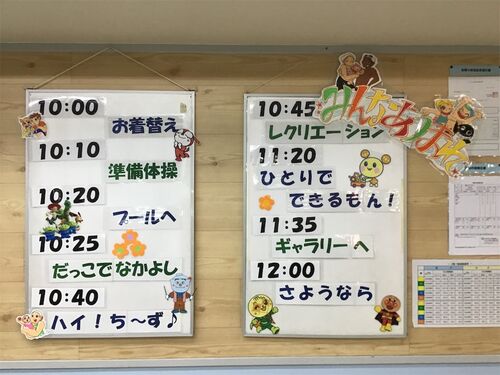 10:00
お着替え
10:10
準備体操
10:20
プールへ
10:25
だっこでなかよし
10:40
ハイ！ち～ず♪
みんなあつまれ
10:45
レクリエーション
11:20
ひとりで
できるもん！
11:35
ギャラリーへ
12:00
さようなら